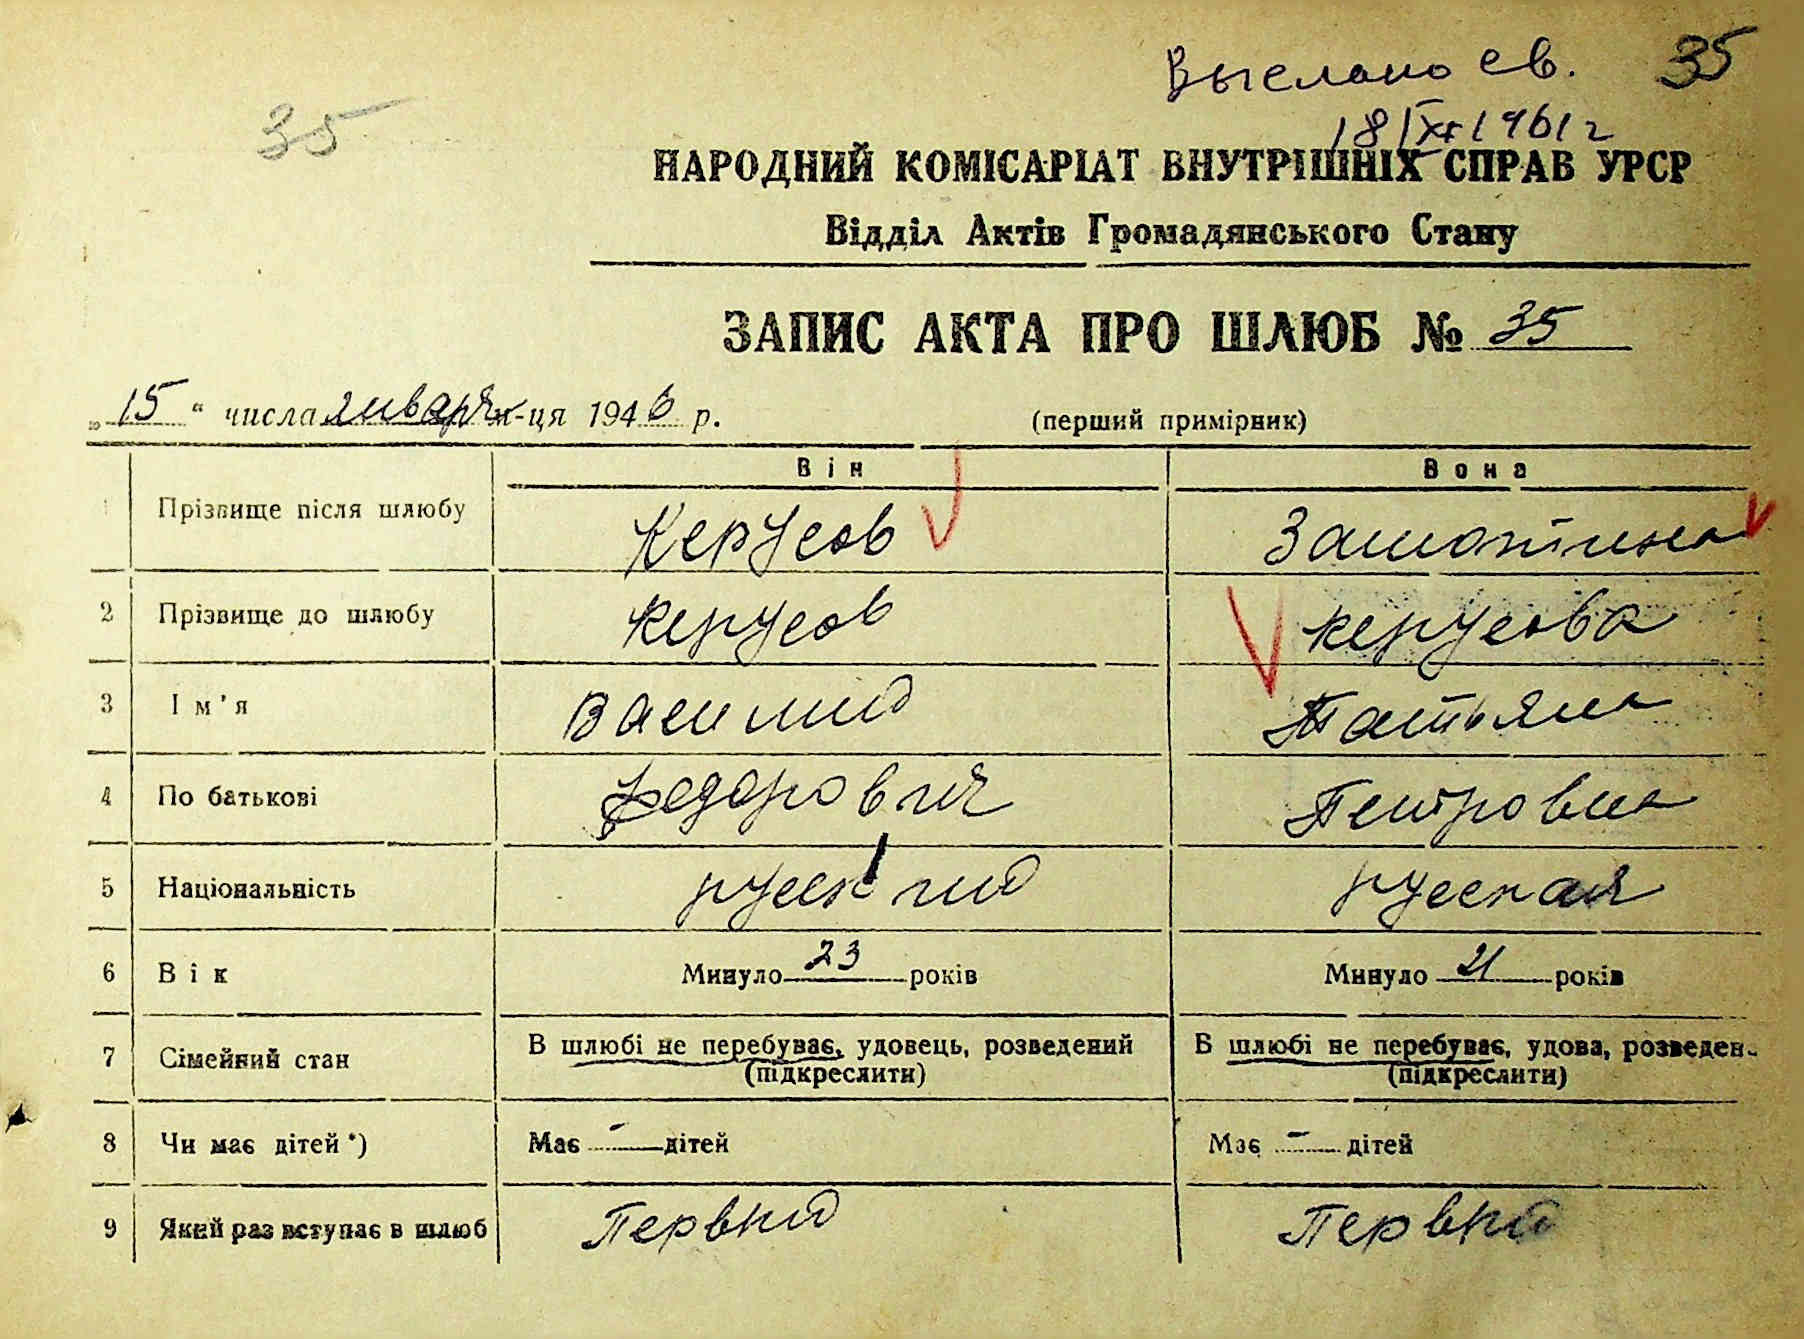 Выслано св. 35
35
18/XI 1961 г
НАРОДНИЙ КОМІСАРІАТ ВНУТРІШНІХ СПРАВ УРСР
Відділ Актів Громадянського Стану
ЗАПИС АКТА ПРО ШЛЮБ № 35
„15“ числа января м-ця 1946 р. (перший примірник)
Він Вона
1 Прізвище після шлюбу Керусов Замотина
2 Прізвище до шлюбу Керусов Керусова
3 Ім'я Василий Татьяна
4 По батькові Федорович Петровна
5 Національність русский русская
6 Вік Минуло 23 років Минуло 21 років
7 Сімейний стан В шлюбі не перебуває, удовець, розведений В шлюбі не перебуває, удова, розведен-
(підкреслити) (підкреслити)
8 Чи має дітей *) Має – дітей Має – дітей
9 Який раз вступає в шлюб Первий Первий